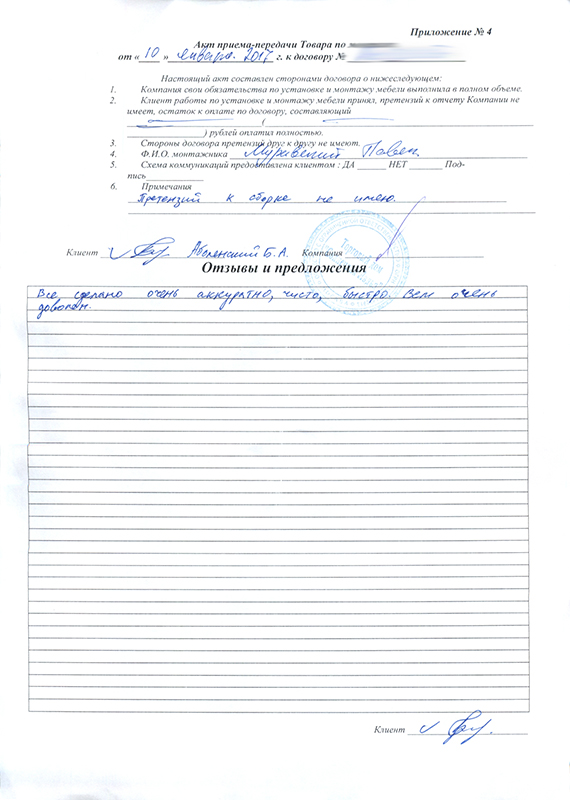 Приложение № 4
Акт приема-передачи Товара по
от « 10 » января 2017 г. к договору №
Настоящий акт составлен сторонами договора о нижеследующем:
1. Компания свои обязательства по установке и монтажу мебели выполнила в полном объеме.
2. Клиент работы по установке и монтажу мебели принял, претензий к отчету Компании не
имеет, остаток к оплате по договору, составляющий
(
) рублей оплатил полностью.
3. Стороны договора претензий друг к другу не имеют.
4. Ф.И.О. монтажника Павел
5. Схема коммуникаций предоставлена клиентом : ДА ______ НЕТ ______ Под-
пись____________
6. Примечания
Претензий к сборке не имею.
Клиент Аболенский Б.А. Компания
Отзывы и предложения
Все сделано очень аккуратно, чисто, быстро. Всем очень
доволен.
Клиент